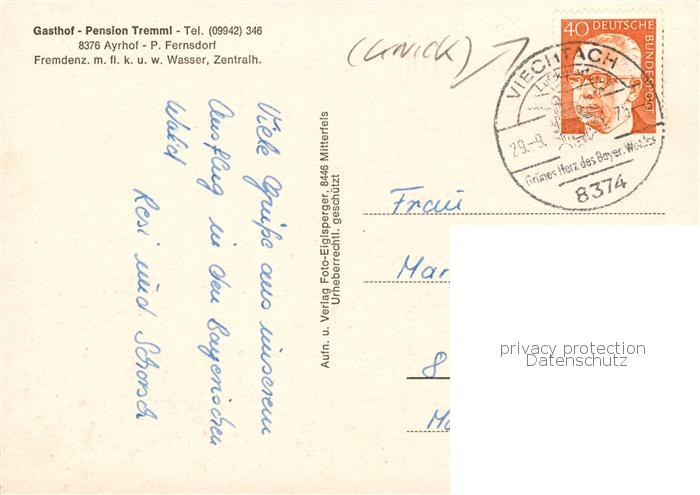 Gasthof - Pension Tremml - Tel. (09942) 346
8376 Ayrhof - P. Fernsdorf
Fremdenz. m. fl. k. u. w. Wasser, Zentralh.
(KNICK)
40 DEUTSCHE
BUNDESPOST
VIECHTACH
29.-9.
75
Grünes Herz des Bayer. Waldes
8374
Viele Grüße aus unserem
Ausflug in den Bayerischen
Wald
Resi und Schorsch
Aufn. u. Verlag Foto-Eiglsperger, 8446 Mitterfels
Urheberrechtl. geschützt
Frau
Mar
8
privacy protection
Datenschutz